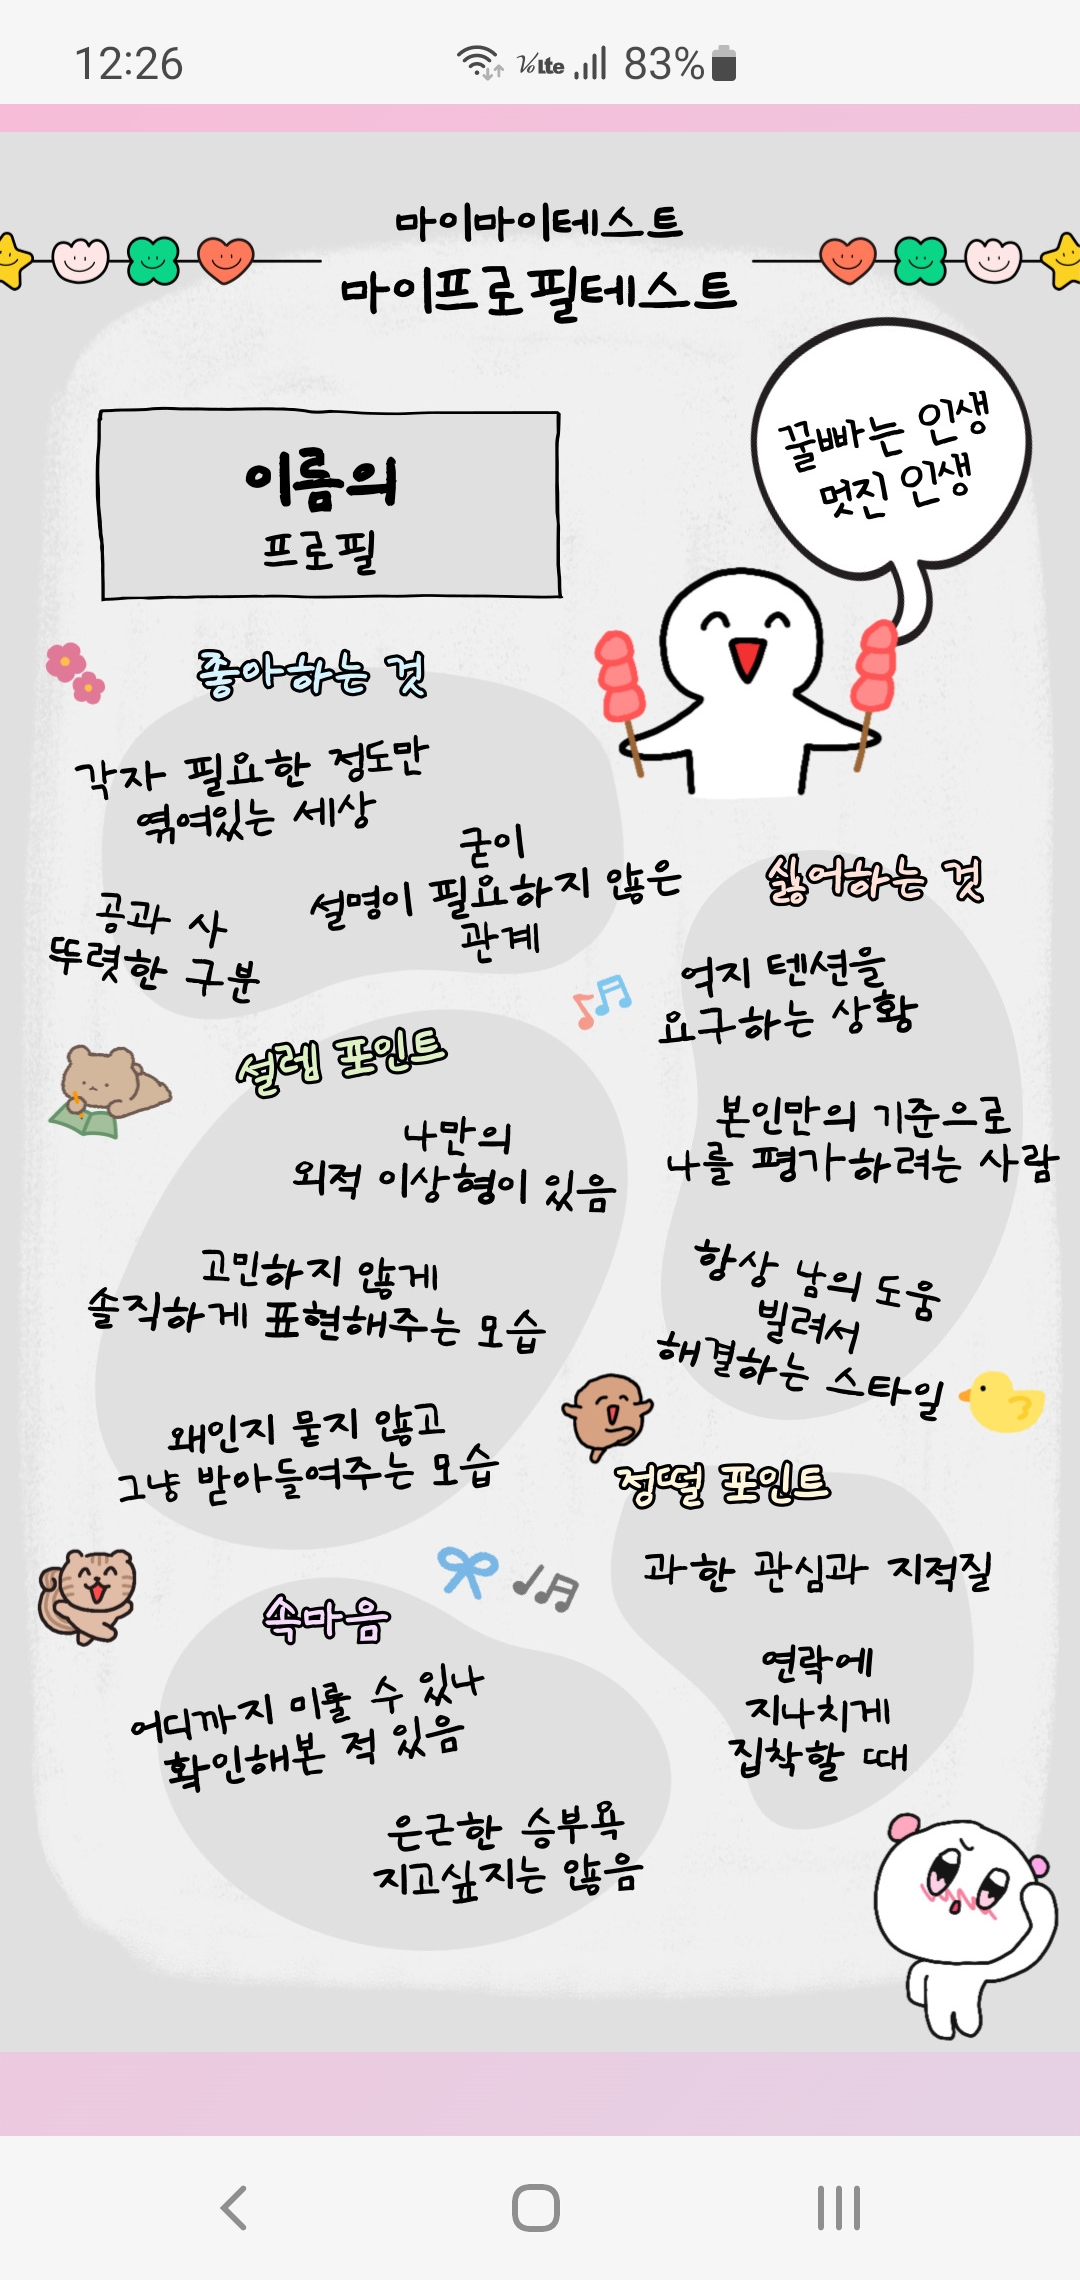 12:26
VoLte
83%
마이마이테스트
마이프로필테스트
꿀빠는 인생
멋진 인생
이름의
프로필
좋아하는 것
각자 필요한 정도만
엮여있는 세상
굳이
설명이 필요하지 않은
관계
공과 사
뚜렷한 구분
싫어하는 것
억지 텐션을
요구하는 상황
본인만의 기준으로
나를 평가하려는 사람
항상 남의 도움
빌려서
해결하는 스타일
설렘 포인트
나만의
외적 이상형이 있음
고민하지 않게
솔직하게 표현해주는 모습
왜인지 묻지 않고
그냥 받아들여주는 모습
정떨 포인트
과한 관심과 지적질
연락에
지나치게
집착할 때
속마음
어디까지 미룰 수 있나
확인해본 적 있음
은근한 승부욕
지고싶지는 않음